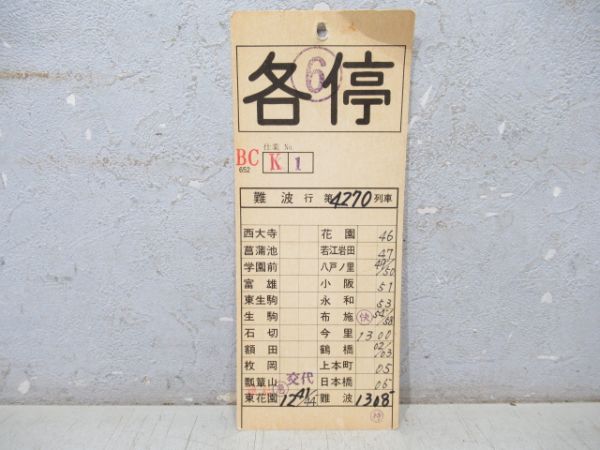 各停
⑥
仕業 No.
BC K 1
652
難波行 第4270列車
西大寺 花園 46
菖蒲池 若江岩田 47
学園前 八戸ノ里 49/50
富雄 小阪 51
東生駒 永和 53
生駒 布施 快 54/58
石切 今里 1300
額田 鶴橋 02/03
枚岡 上本町 05
瓢簞山 交代 日本橋 06
東花園 12 41/44 難波 1308